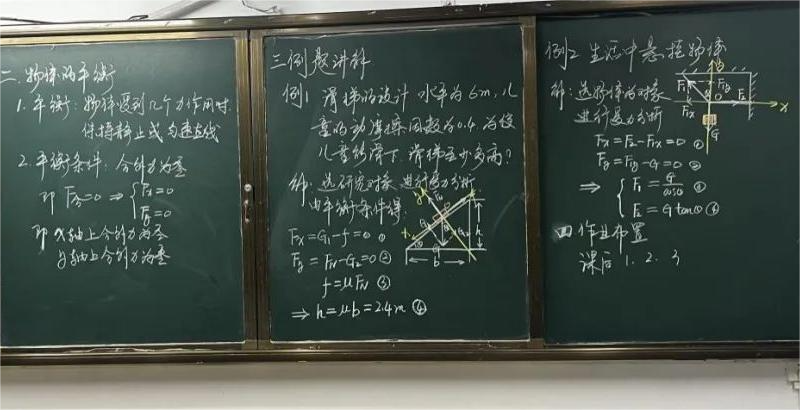 二. 物体的平衡
1. 平衡：物体受到几个力作用时.
保持静止或匀速直线
2. 平衡条件：合外力为零
即 F合=0 ⇒ { Fx=0
Fy=0
即 x轴上合外力为零
y轴上合外力为零
三.例题讲解
例1 滑梯的设计 水平为6m,儿
童的动摩擦因数为0.4.为使
儿童能滑下.滑梯至少多高?
解：选研究对象进行受力分析
由平衡条件得:
Fx=G₁-f=0 ①
Fy=FN-G₂=0 ②
f=μFN ③
⇒ h=μb=2.4m ④
y
x
h
b
例2 生活中悬挂物体
解：选物体为对象
进行受力分析
Fx=F₂-F₁x=0 ①
Fy=F₁y-G=0 ②
⇒ { F₁=G/cosθ ③
F₂=Gtanθ ④
y
F₁
F₁y
θ
O
F₂
x
Fx
G
四 作业布置
课后 1. 2. 3